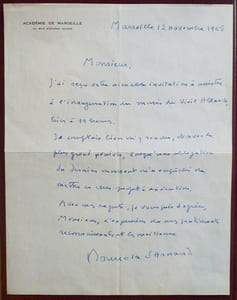 ACADÉMIE DE MARSEILLE
Marseille 12 novembre 1965
Monsieur,
J'ai reçu votre aimable invitation à assister
à l'inauguration du musée du Vieil
hier à 11 heures.
Je comptais bien m'y rendre, et avec le
plus grand plaisir, lorsque une obligation
du dernier moment m'a empêché de
mettre ce projet à exécution.
Avec mes regrets, je vous prie d'agréer,
Monsieur, l'expression de mes sentiments
reconnaissants et les meilleurs